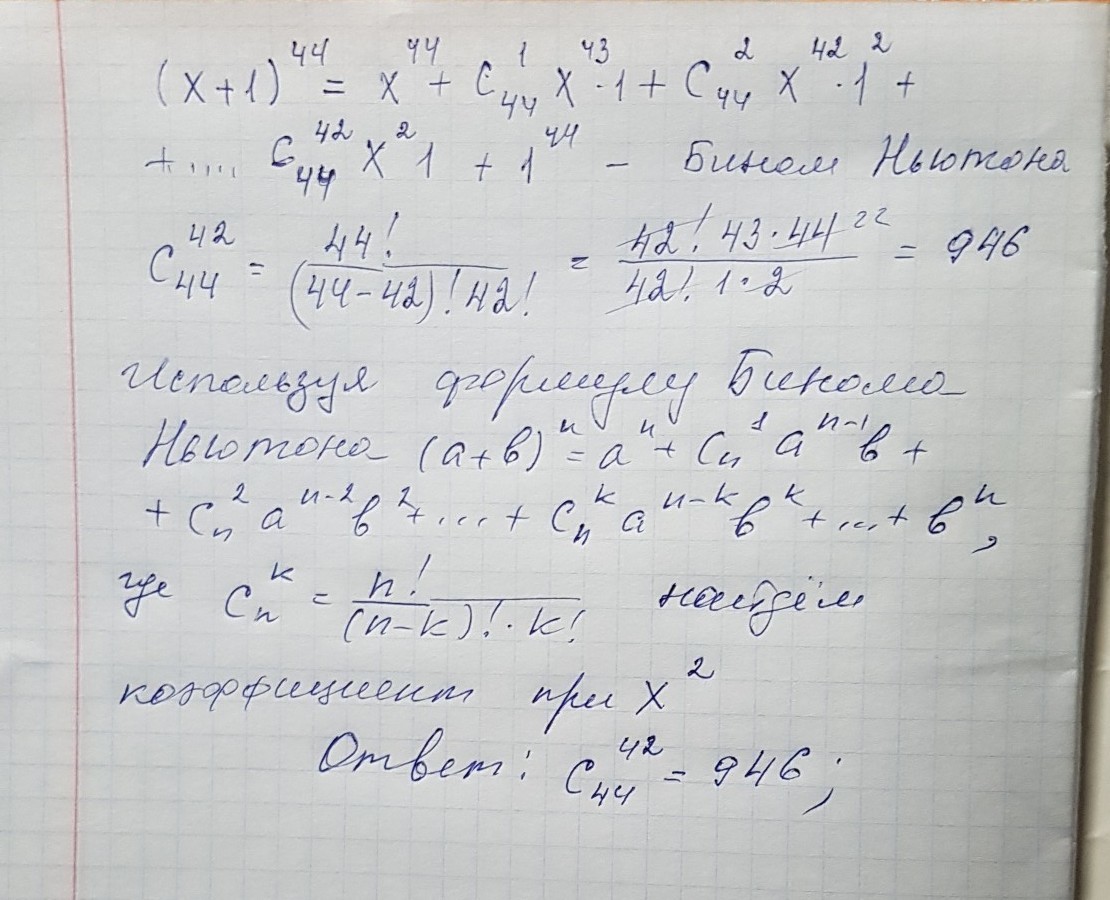 (x+1)^44 = x^44 + C_44^1 x^43 · 1 + C_44^2 x^42 · 1^2 +
+ .... C_44^42 x^2 1 + 1^44 – Бином Ньютона
C_44^42 = 44! / (44-42)! 42! = 42! 43 · 44 22 / 42! 1 · 2 = 946
Используя формулу Бинома
Ньютона (a+b)^n = a^n + C_n^1 a^n-1 b +
+ C_n^2 a^n-2 b^2 + ... + C_n^k a^n-k b^k + ... + b^n,
где C_n^k = n! / (n-k)! · k! найдём
коэффициент при x^2
Ответ: C_44^42 = 946;